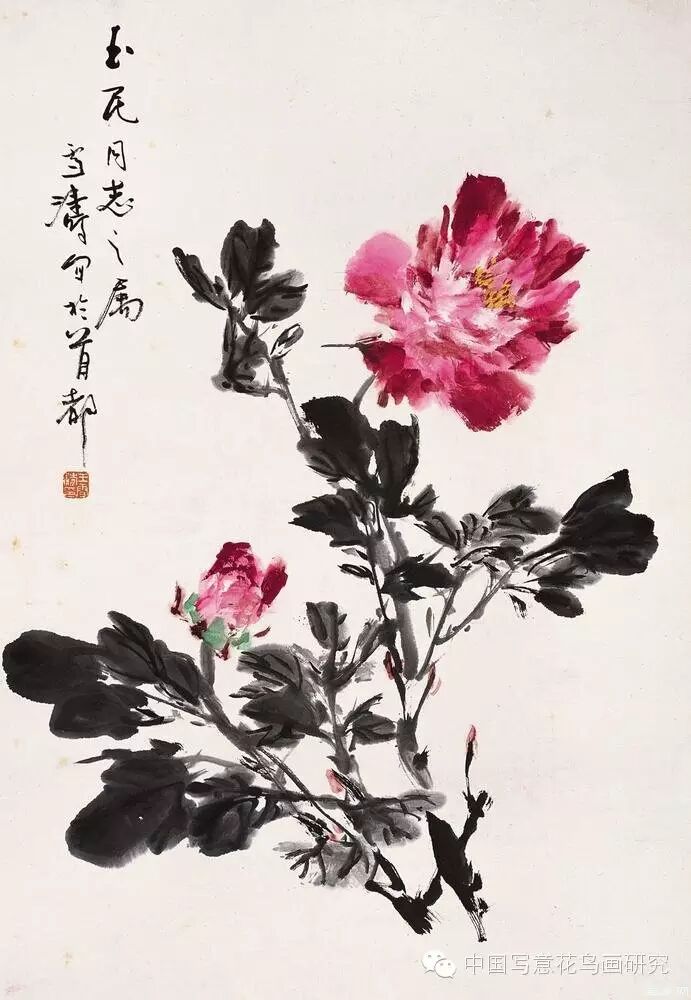 玉民同志之属
雪涛写于首都
中国写意花鸟画研究